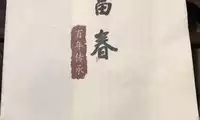 富春
百年传承